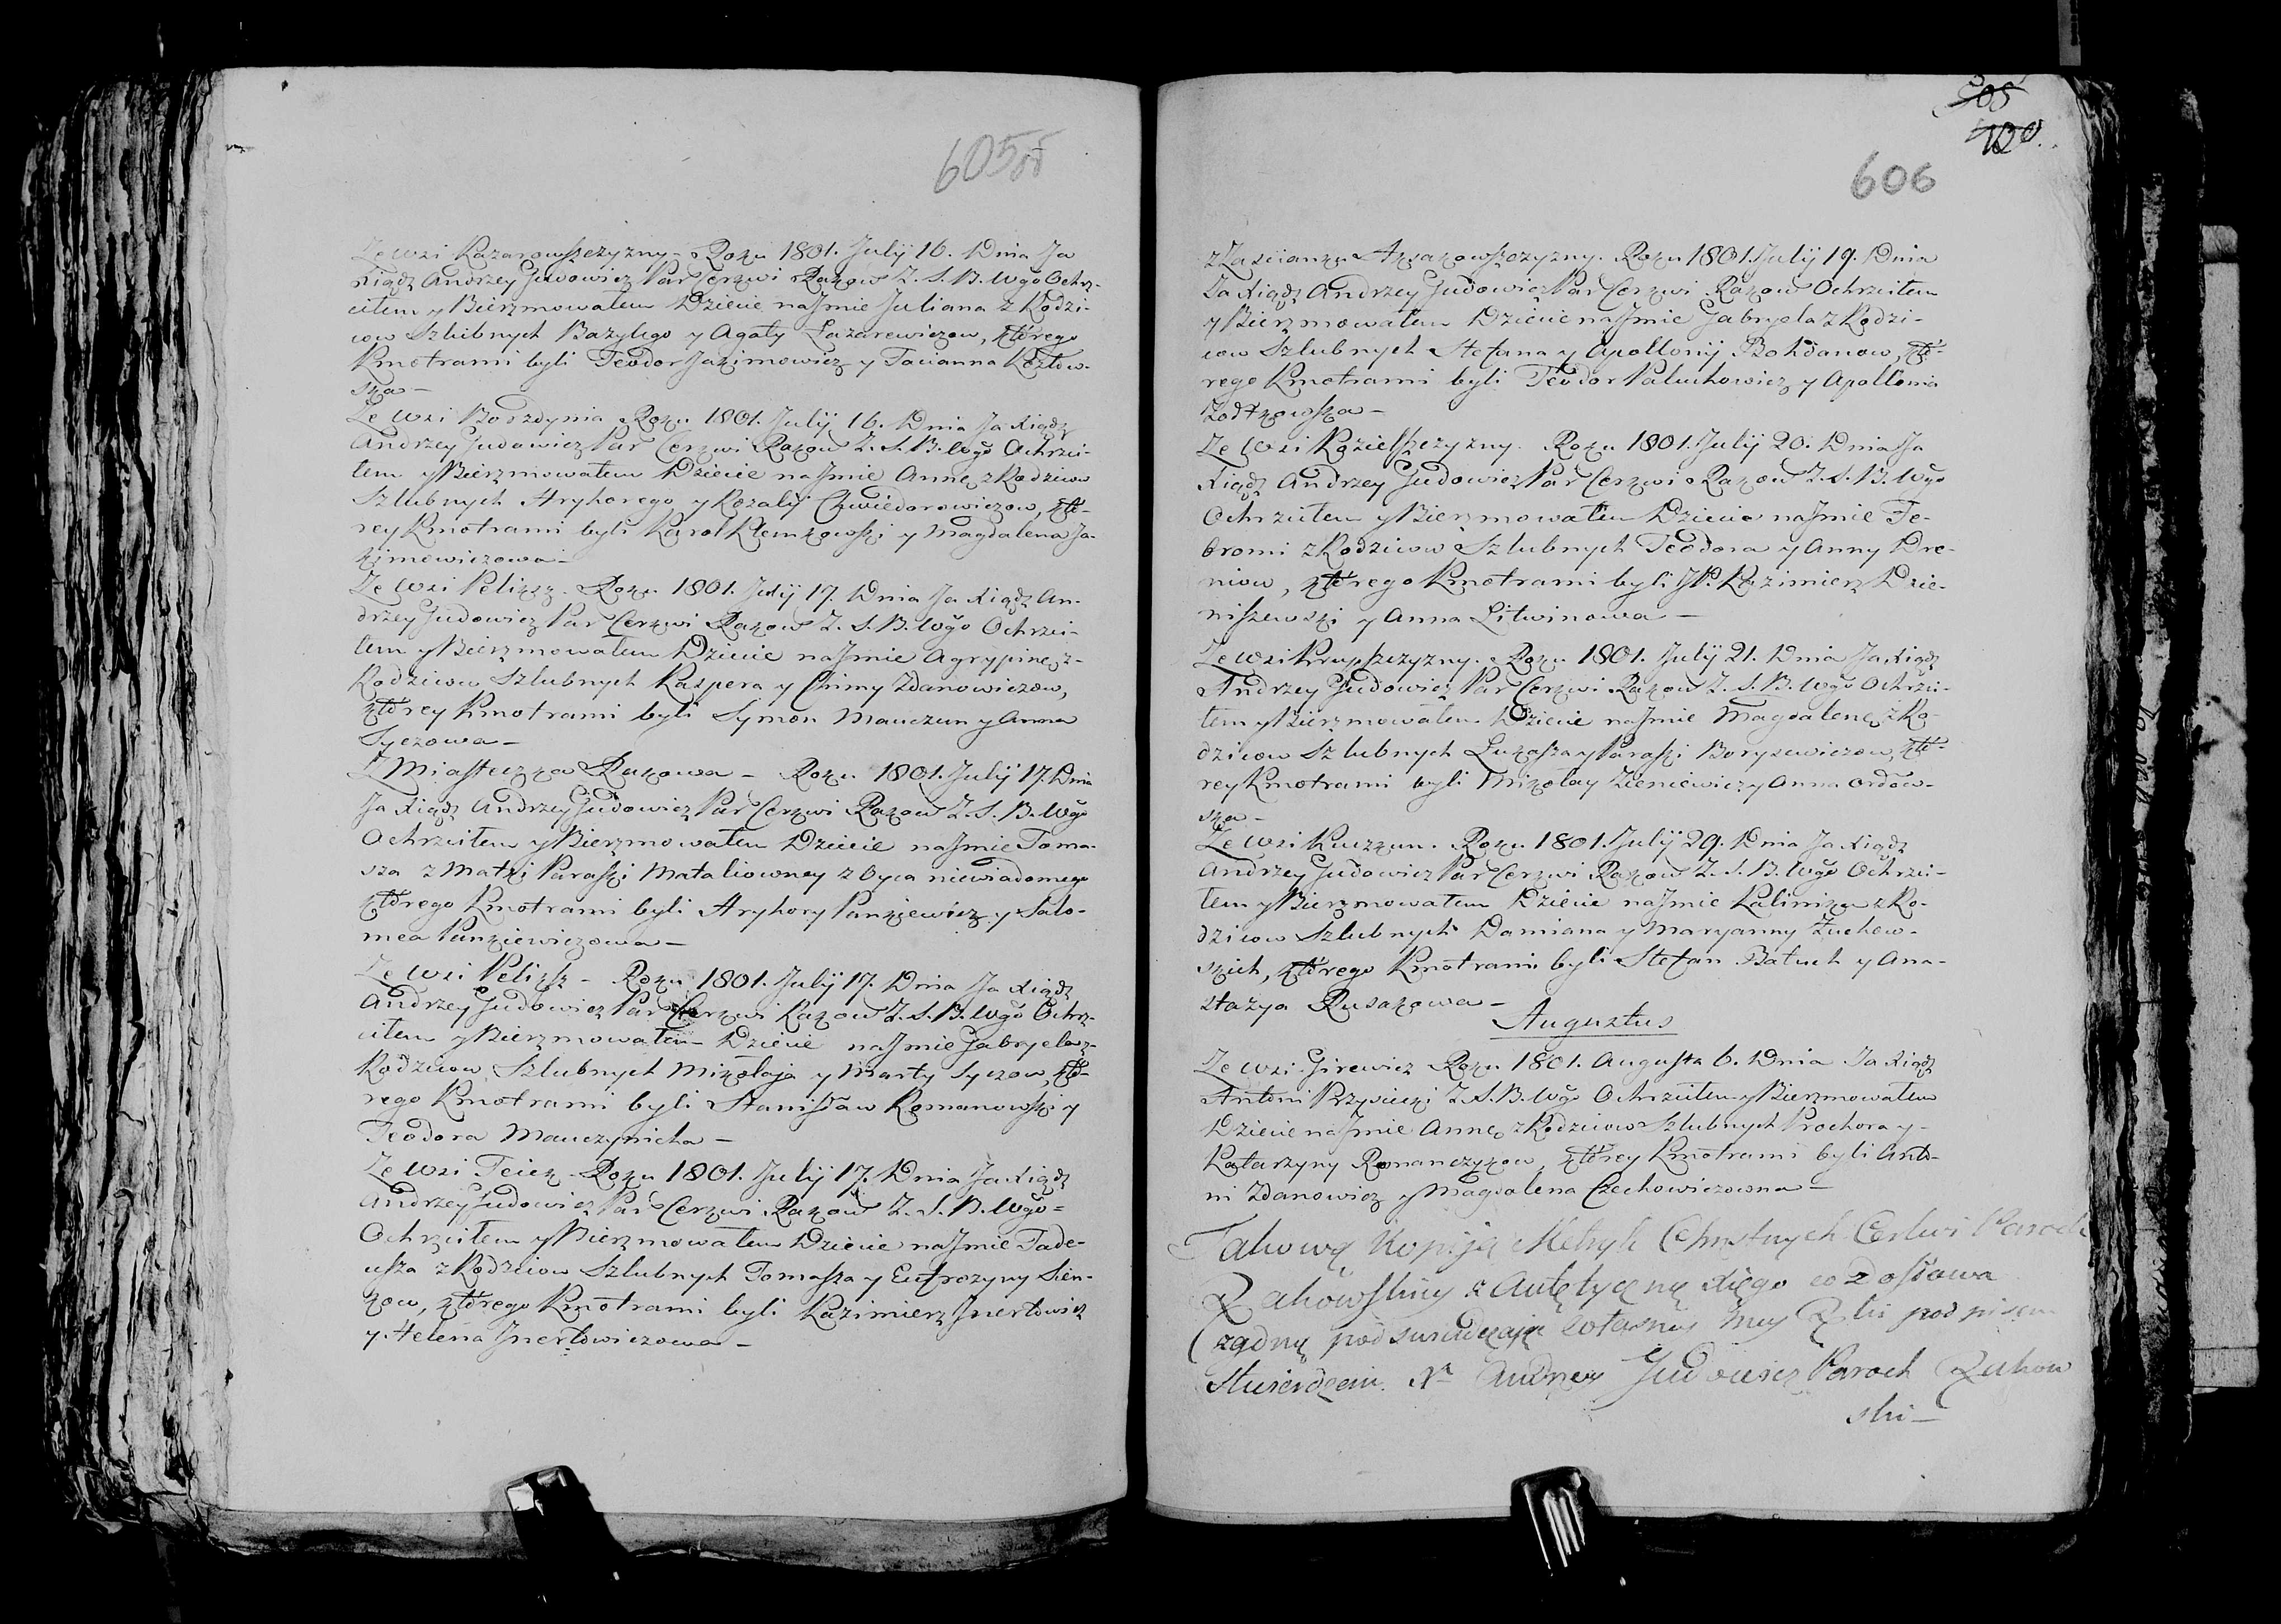 605 об
Ze Wsi Kazarowszczyzny - Roku 1801. Julÿ 16. Dnia Ja
Xiądz Andrzey Judowicz Par Cerkwi Rakow Z. S. B. Wgo Ochrz-
ciłem y Bierzmowałem Dziecie naJmie Juliana z Rodzi-
cow Szlubnych Bazylego y Agaty Łazarewiczow, którego
Kmotrami byli Teodor Jakimowicz y Tacianna Kozłow-
ska -
Ze Wsi Borzdynia Roku 1801. Julÿ 16. Dnia Ja Xiądz
Andrzey Judowicz Par Cerkwi Rakow Z. S. B. Wgo Ochrzci-
łem y Bierzmowałem Dziecie naJmie Annę z Rodzicow
Szlubnych Hryhorego y Rozalÿ Chwiedorowiczow, któ-
rey Kmotrami byli Karol Klemkowski y Magdalena Ja-
kimowiczowa -
Ze Wsi Peliksz - Roku 1801. Julÿ 17. Dnia Ja Xiądz An-
drzey Judowicz Par Cerkwi Rakow Z. S. B. Wgo Ochrzci-
łem y Bierzmowałem Dziecie naJmie Agrypinę z-
Rodzicow Szlubnych Kaspera y Chimy Zdanowiczow,
którey Kmotrami byli Symon Mauczun y Anna
Syczowa -
Z Miasteczka Rakowa - Roku 1801. Julÿ 17. Dnia
Ja Xiądz Andrzey Judowicz Par Cerkwi Rakow Z. S. B. Wgo
Ochrzciłem y Bierzmowałem Dziecie naJmie Toma-
sza z Matki Paraski Mataliowney z Oyca niewiadomego
którego Kmotrami byli Hryhory Pankiewicz y Salo-
mea Pankiewiczowa -
Ze Wsi Peliksz - Roku 1801. Julÿ 17. Dnia Ja Xiądz
Andrzey Judowicz Par Cerkwi Rakow Z. S. B. Wgo Ochrz-
ciłem y Bierzmowałem Dziecie naJmie Gabryela z-
Rodzicow Szlubnych Mikołaja y Marty Syczow, któ-
rego Kmotrami byli Stanisław Romanowski y
Teodora Mauczynicha -
Ze Wsi Roku 1801. Julÿ 17. Dnia Ja Xiądz
Andrzey Judowicz Par Cerkwi Rakow Z. S. B. Wgo =
Ochrzciłem y Bierzmowałem Dziecie naJmie Tade-
usza z Rodzicow Szlubnych Tomasza y Eufrozyny Sien-
kow, którego Kmotrami byli Kazimierz Jnerłowicz
y Helena Jnerłowiczowa -
505
400.
606
z Zascianku Roku 1801. Julÿ 19. Dnia
Ja Xiądz Andrzey Judowicz Par Cerkwi Rakow Ochrzciłem
y Bierzmowałem Dziecie naJmie Gabryela z Rodzi-
cow Szlubnych Stefana y Apollonÿ Bohdanow, któ-
rego Kmotrami byli Teodor Paluchowicz y Apollonia
Zołtkowska -
Ze Wsi Kozielszczyzny. Roku 1801. Julÿ 20. Dnia Ja
Xiądz Andrzey Judowicz Par Cerkwi Rakow Z. S. B. Wgo
Ochrzciłem y Bierzmowałem Dziecie naJmie Fe-
broni z Rodzicow Szlubnych Teodora y Anny Dre-
niow, którego Kmotrami byli JP. Kazimierz Dzie-
niszewski y Anna Litwinowa -
Ze Wsi Krupszczyzny. Roku 1801. Julÿ 21. Dnia Ja Xiądz
Andrzey Judowicz Par Cerkwi Rakow Z. S. B. Wgo Ochrzci-
łem y Bierzmowałem Dziecie naJmie Magdalenę z Ro-
dzicow Szlubnych Łukasza y Paraski Borysewiczow, któ-
rey Kmotrami byli Mikołay Zieniewicz y Anna Ordow-
ska -
Ze Wsi Kuczkun. Roku 1801. Julÿ 29. Dnia Ja Xiądz
Andrzey Judowicz Par Cerkwi Rakow Z. S. B. Wgo Ochrzci-
łem y Bierzmowałem Dziecie naJmie Kalinika z Ro-
dzicow Szlubnych Damiana y Maryanny Żuchow-
skich, którego Kmotrami byli Stefan Batuch y Ana-
stazya Rusakowa -
Augustus
Ze Wsi Girewicz Roku 1801. Augusta 6. Dnia Ja Xiądz
Antoni Przysiecki Z. S. B. Wgo Ochrzciłem y Bierzmowałem
Dziecie naJmie Annę z Rodzicow Szlubnych Prochora y -
Katarzyny Romanczykow, którey Kmotrami byli Anto-
ni Zdanowicz y Magdalena Czechowiczowna -
Takową Kopiją Metryk Chrstnych Cerkwi Paroch
Rakowskiey z Autętyczną Xięgo co do słowa
zgodną pod swiadczając własney mey Ręki podpisem
stwierdzam. Xn Andrzey Judowicz Paroch Rakow
ski -